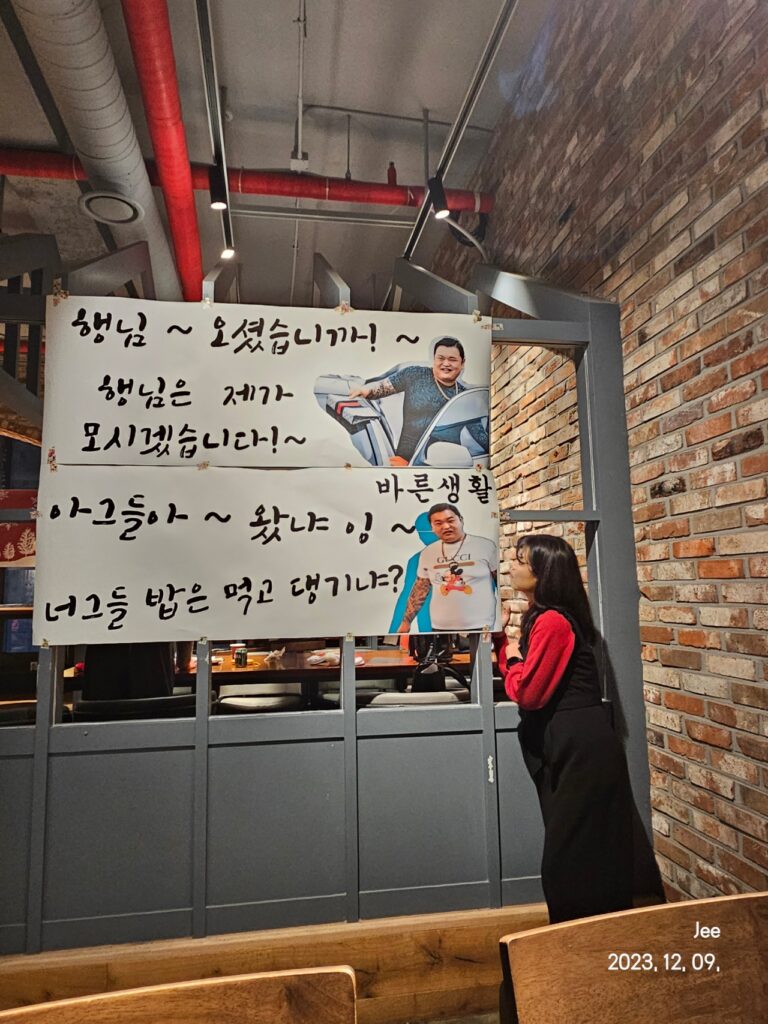 행님 ~ 오셨습니까! ~
행님은 제가
모시겠습니다!~
바른생활
아그들아 ~ 왔냐 잉 ~
너그들 밥은 먹고 댕기냐?
GUCCI
Jee
2023, 12, 09,